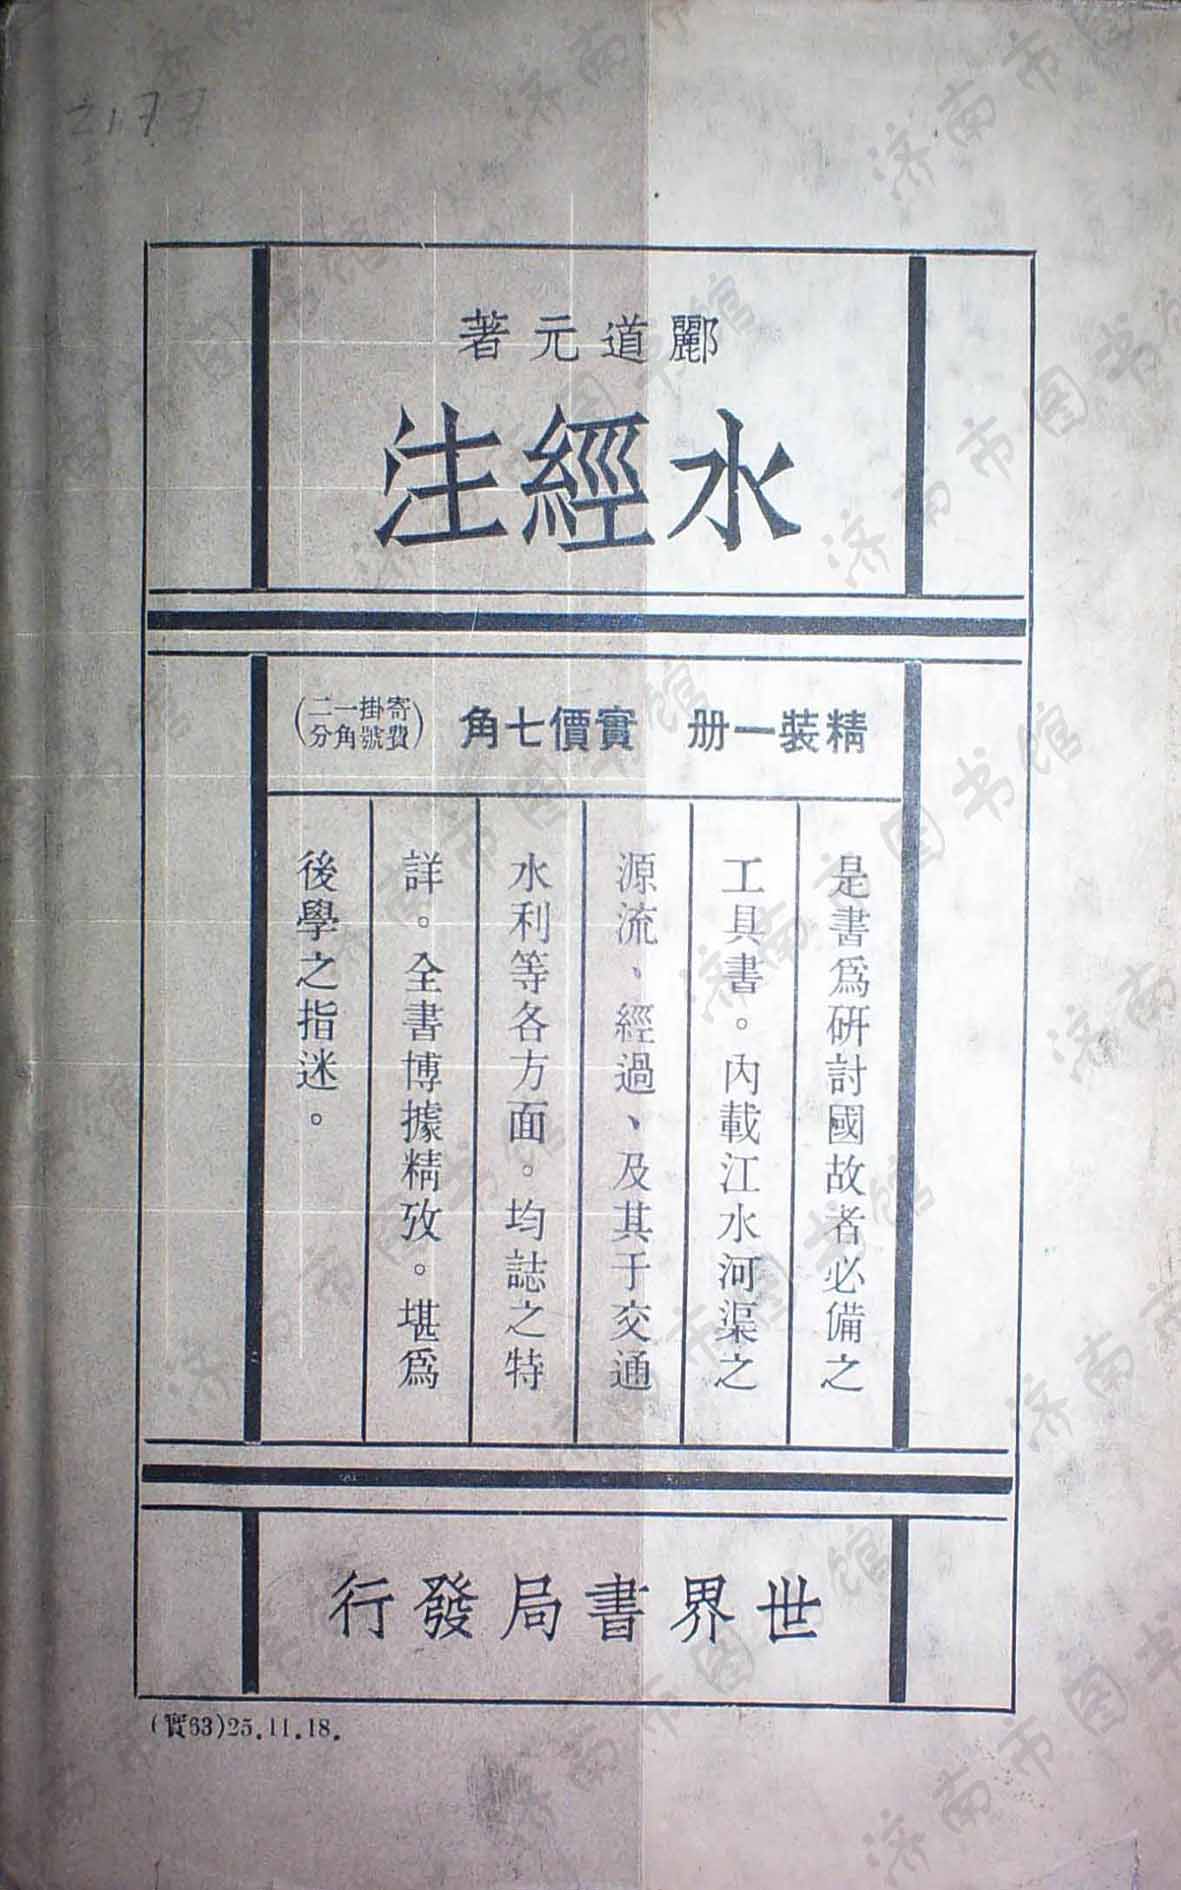 2177
酈道元著
水經注
精裝一册 實價七角
(寄費掛號一角二分)
是書爲研討國故者必備之
工具書。內載江水河渠之
源流、經過、及其于交通
水利等各方面。均誌之特
詳。全書博據精攷。堪爲
後學之指迷。
世界書局發行
(實63)25.11.18.
济南市图书馆